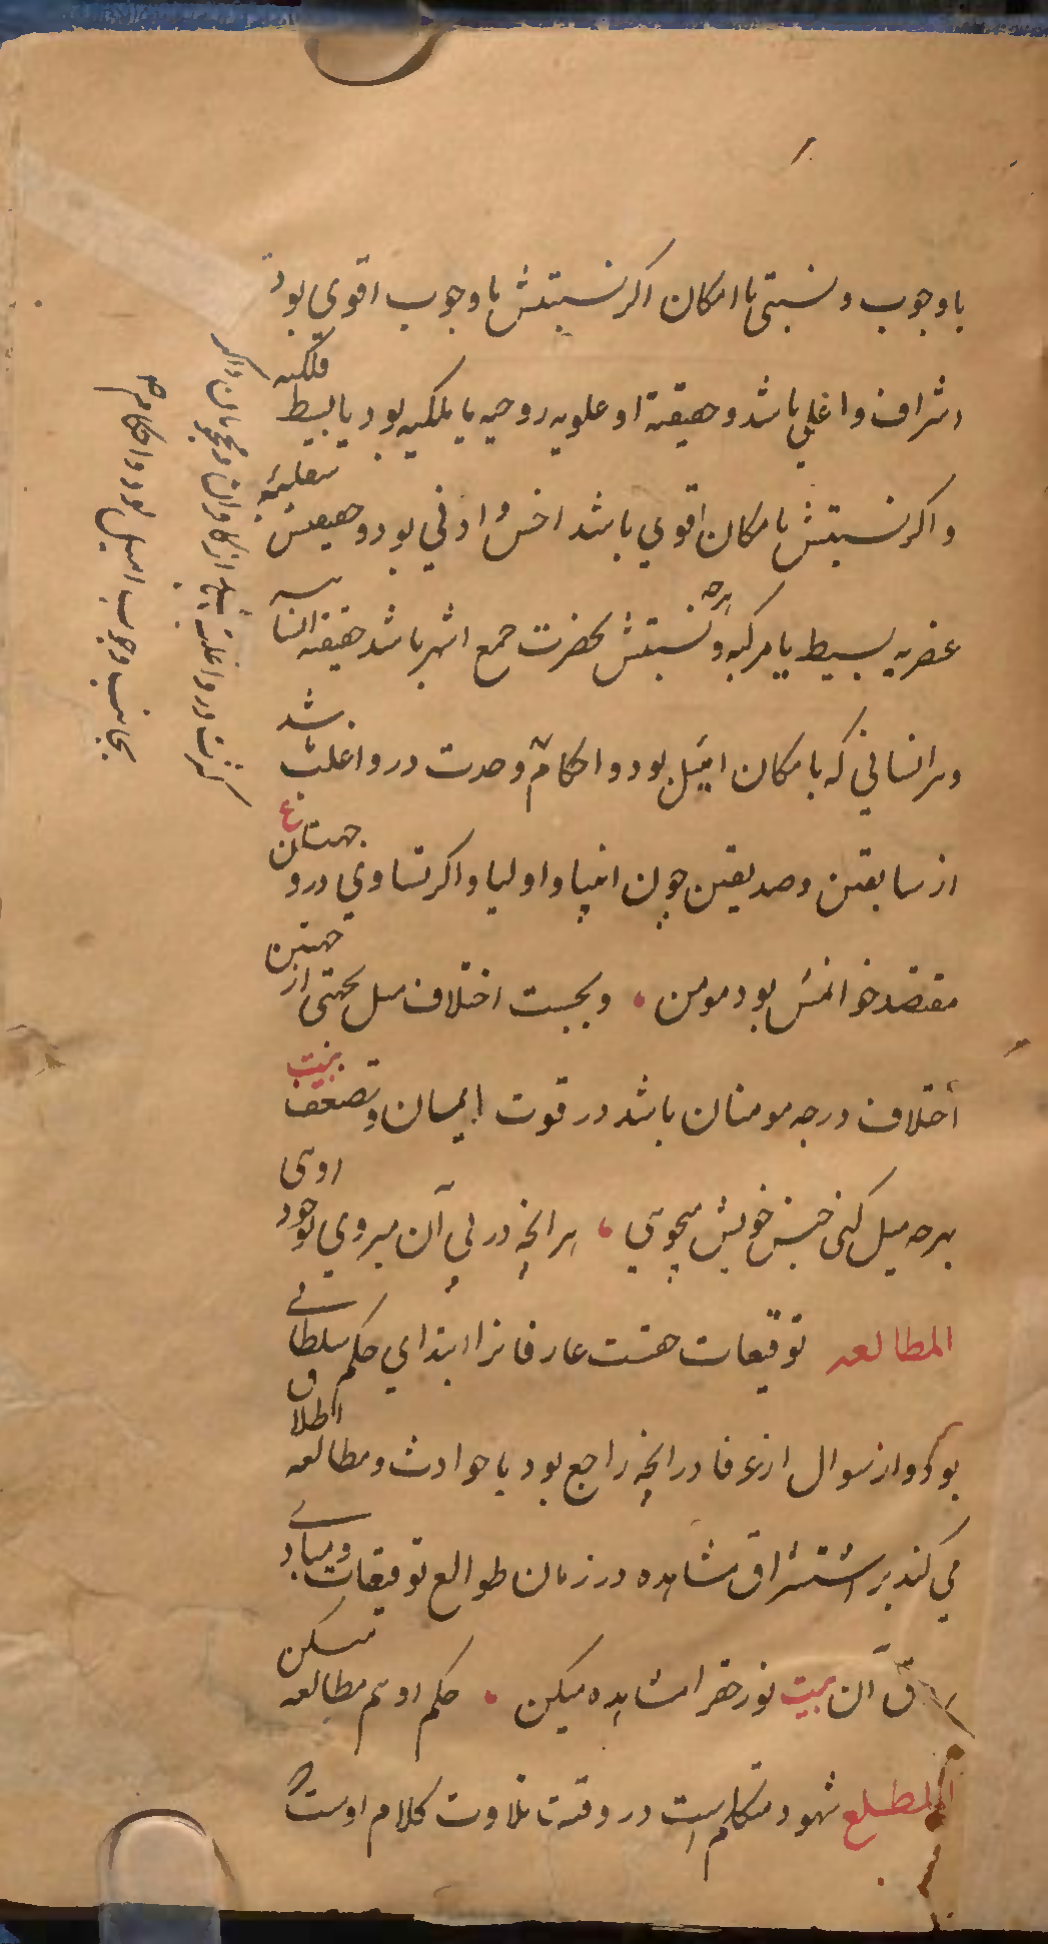 با وجوب و نسبتی با امکان اکر نسبتش با وجوب اقوی بود
اشراف و اعلی باشد و حقیقة او علویه روحیه یا ملکیه بود یا بسیط فلکیه
و اکر نسبتش با مکان اقوی باشد اخس و ادنی بود و حقیقتش سفلیه
عنصریه بسیط یا مرکبه و هرچه نسبتش بحضرت جمع اشهر باشد حقیقة انسانیه
و هر انسانی که با مکان امیل بود و احکام وحدت درو اغلب شد
از سابقین و صدیقین چون انبیا و اولیا و اکر تساوی درو جهتان
مقتصد خوانمش بود مومن و بجست اختلاف میل بجهتی از جهتین
اختلاف درجه مومنان باشد در قوت ایمان و ضعف بیت
بهرچه میل کنی جنس خویش میجویی هر انچه در پی آن میروی بوجود اوئی
المطالعه توقیعات هست عارفانرا ابتدای حکم سلطانی
بود و از سوال از عرفا در انچه راجع بود با حوادث و مطالعه اطلاق
می کند بر استشراق مشاهده در زمان طوالع توقیعات و مبادی
آن بیت نور حقرا مشاهده میکن حکم او هم مطالعه میکن
المطلع شهود متکلم است در وقت تلاوت کلام اوست
کثرت درو اغلب
بجانب وجوب امیل بود و احکام